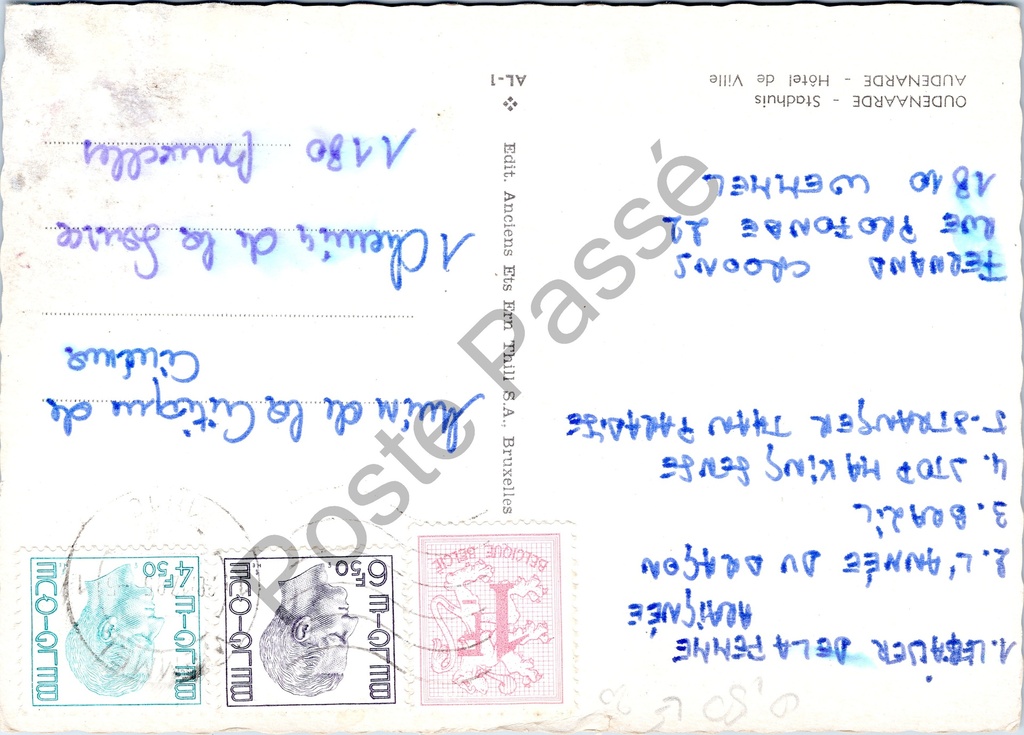 1. LE BAISER DE LA FEMME
ARAIGNÉE
2. L'ANNÉE DU DRAGON
3. BRAZIL
4. STOP MAKING SENSE
5-STRANGER THAN PARADISE
FERNAND CROONS
RUE PROFONDE 22
1810 WEMMEL
OUDENAARDE - Stadhuis
AUDENARDE - Hôtel de Ville
AL-1
Edit. Anciens Ets Ern Thill S.A., Bruxelles
BELGIQUE BELGIË
1F
BELGIE-BELGIQUE
6F50
BELGIE-BELGIQUE
4F50
de la Critique de
Cinéma
1 Chemin de la Source
1180 Bruxelles
Poste Passé